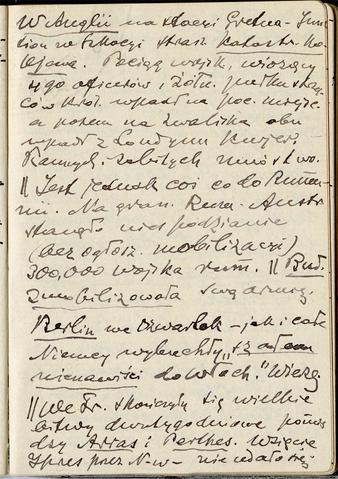 W Anglii na stacji Gretna-Junc-
tion w Szkocji strasz. katastr. ko-
lejowa. Pociąg wojsk, wiozący
490 oficerów i żołn. pułku
ców król. wpadł na poc. miejsc.
a potem na zwaliska obu
wpadł z Londynu kurjer.
Rannych i zabitych mnóstwo.
|| Jest jednak coś co do Rumu-
nii. Na gran. Rum.-Austr.
stanęło niespodzianie
(bez ogłosz. mobilizacji)
300,000 wojska rum. || Buł.
zmobilizowała swą armję.
Berlin we czwartek - jak i całe
Niemcy wybuchły
nienawiści do Włoch."
|| We Fr. skończyły się wielkie
bitwy dwutygodniowe pomię-
dzy Arras i Perthes. Wzięcie
Ypres przez N-w - nie udało się.